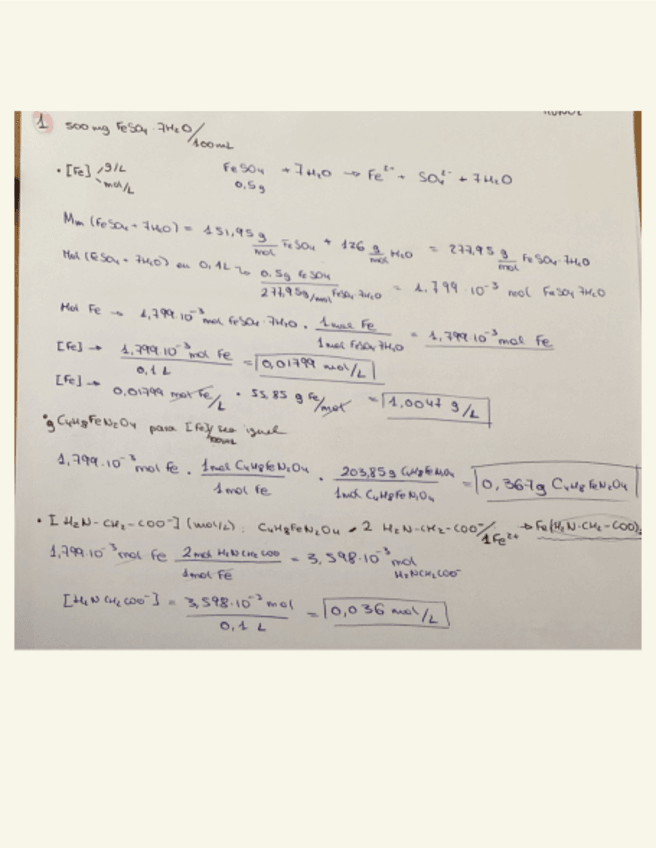 1 500 mg FeSO4 · 7H2O / 100mL
· [Fe] g/L mol/L
FeSO4 + 7H2O → Fe2+ + SO4 2- + 7H2O
0,5g
Mm (FeSO4 · 7H2O) = 151,95 g/mol FeSO4 + 126 g/mol H2O = 277,95 g/mol FeSO4·7H2O
Mol (FeSO4 · 7H2O) en 0,1L → 0,5g FeSO4 / 277,95g/mol FeSO4·7H2O = 1,799·10⁻³ mol FeSO4·7H2O
Mol Fe → 1,799·10⁻³ mol FeSO4·7H2O · 1 mol Fe / 1 mol FeSO4·7H2O = 1,799·10⁻³ mol Fe
[Fe] → 1,799·10⁻³ mol Fe / 0,1 L = 0,01799 mol/L
[Fe] → 0,01799 mol Fe/L · 55,85 g Fe/mol = 1,0047 g/L
· g C4H8FeN2O4 para [Fe]/100mL sea igual
1,799·10⁻³ mol Fe · 1 mol C4H8FeN2O4 / 1 mol Fe · 203,85g C4H8FeN2O4 / 1 mol C4H8FeN2O4 = 0,367g C4H8FeN2O4
· [H2N-CH2-COO⁻] (mol/L): C4H8FeN2O4 → 2 H2N-CH2-COO⁻ / 1 Fe2+ → Fe(H2N·CH2-COO)2
1,799·10⁻³ mol Fe 2 mol H2NCH2COO / 1 mol Fe = 3,598·10⁻³ mol H2NCH2COO⁻
[H2NCH2COO⁻] = 3,598·10⁻³ mol / 0,1 L = 0,036 mol/L